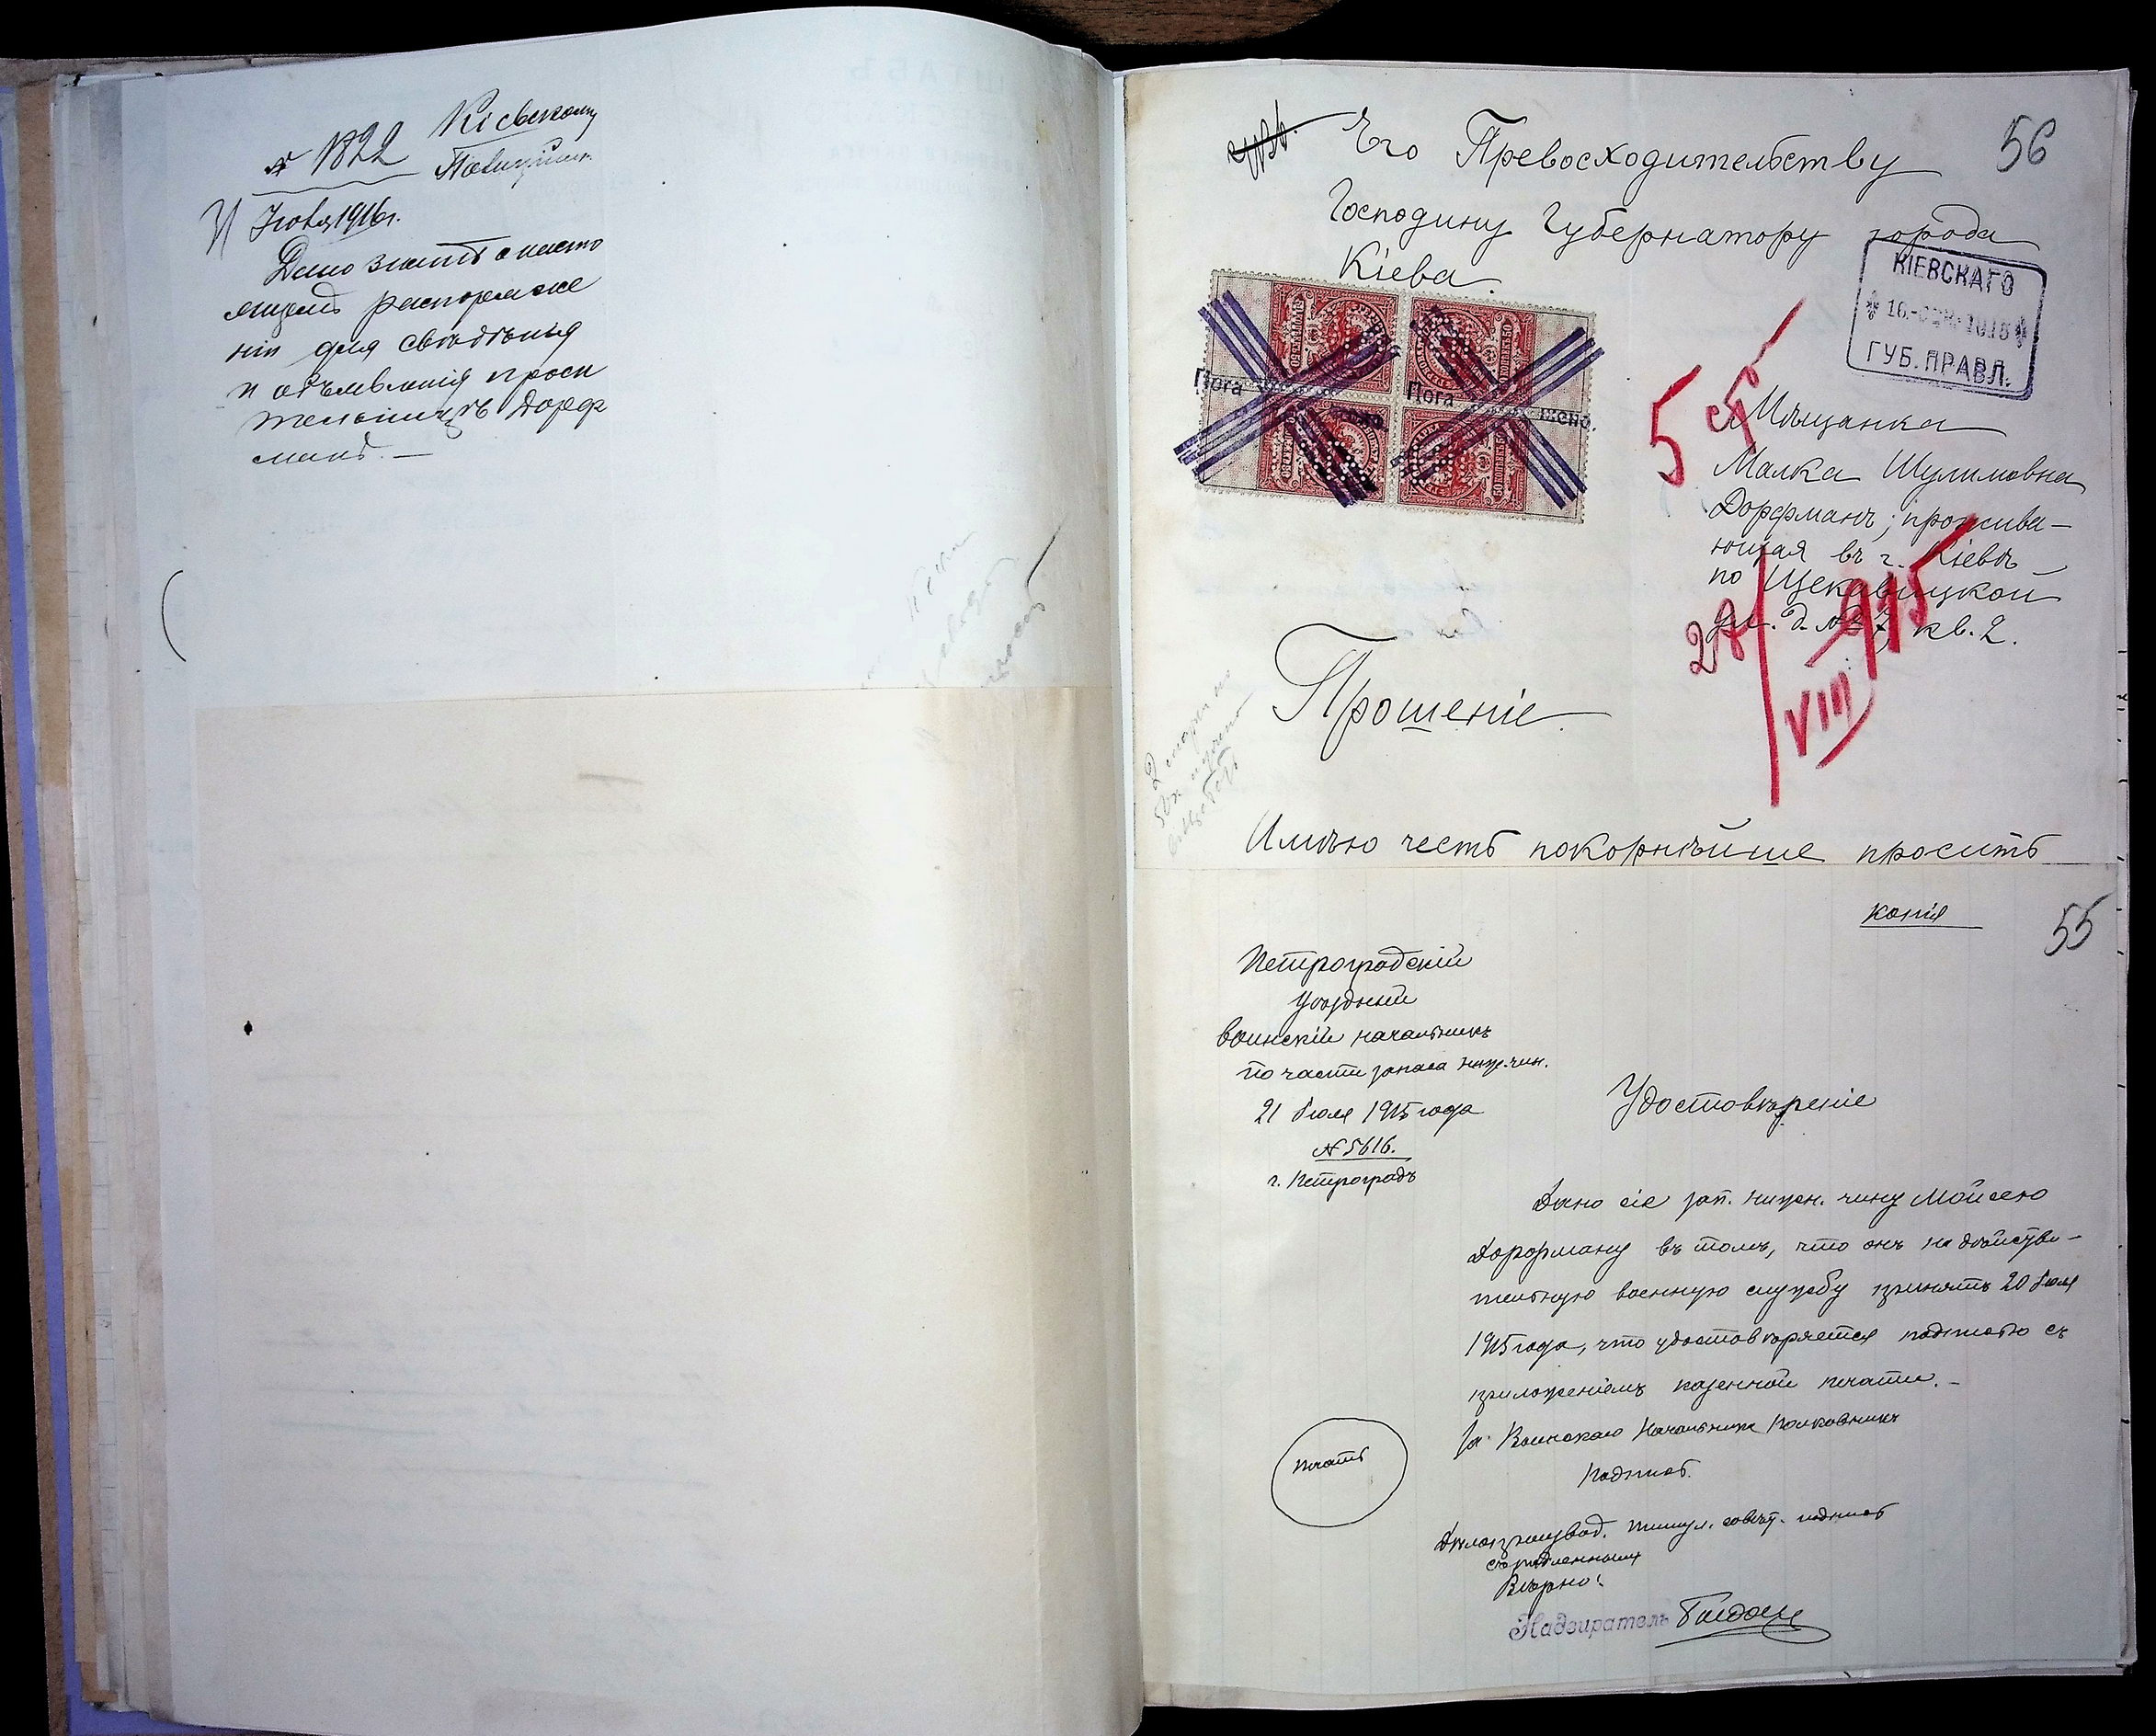 № 1822 Кіевскому
Полиційм.
31 Іюля 1916 г.
Дано знать о насто
ящемъ распоряже
ніи для свѣдѣнія
и объявленія проси
тельницѣ Дорф
манъ. —
Его Превосходительству
56
Господину Губернатору города
Кіева.
КІЕВСКАГО
ГУБ. ПРАВЛ.
Пога шено.
Пога шено.
5
Мѣщанка
Малка Шулимовна
Дорфманъ, прожива-
ющая въ г. Кіевѣ
по Щекавицкой
ул. д. № 7, кв. 2.
28/VIII 915
Прошеніе.
Имѣю честь покорнѣйше просить
копія
55
Петроградскій
уѣздный
воинскій начальникъ
по части запаса ниж. чин.
21 Іюля 1915 года
№ 5616.
г. Петроградъ
Удостовѣреніе
Дано сіе зап. нижн. чину Мойсею
Дорфману въ томъ, что онъ на дѣйстви-
тельную военную службу принятъ 20 Іюля
1915 года, что удостовѣряется подписью съ
приложеніемъ казенной печати. —
За Воинскаго Начальника Полковникъ
подпись.
печать
Дѣлопроизвод. титул. совѣт. подпись
съ подлиннымъ
Вѣрно:
Надзиратель